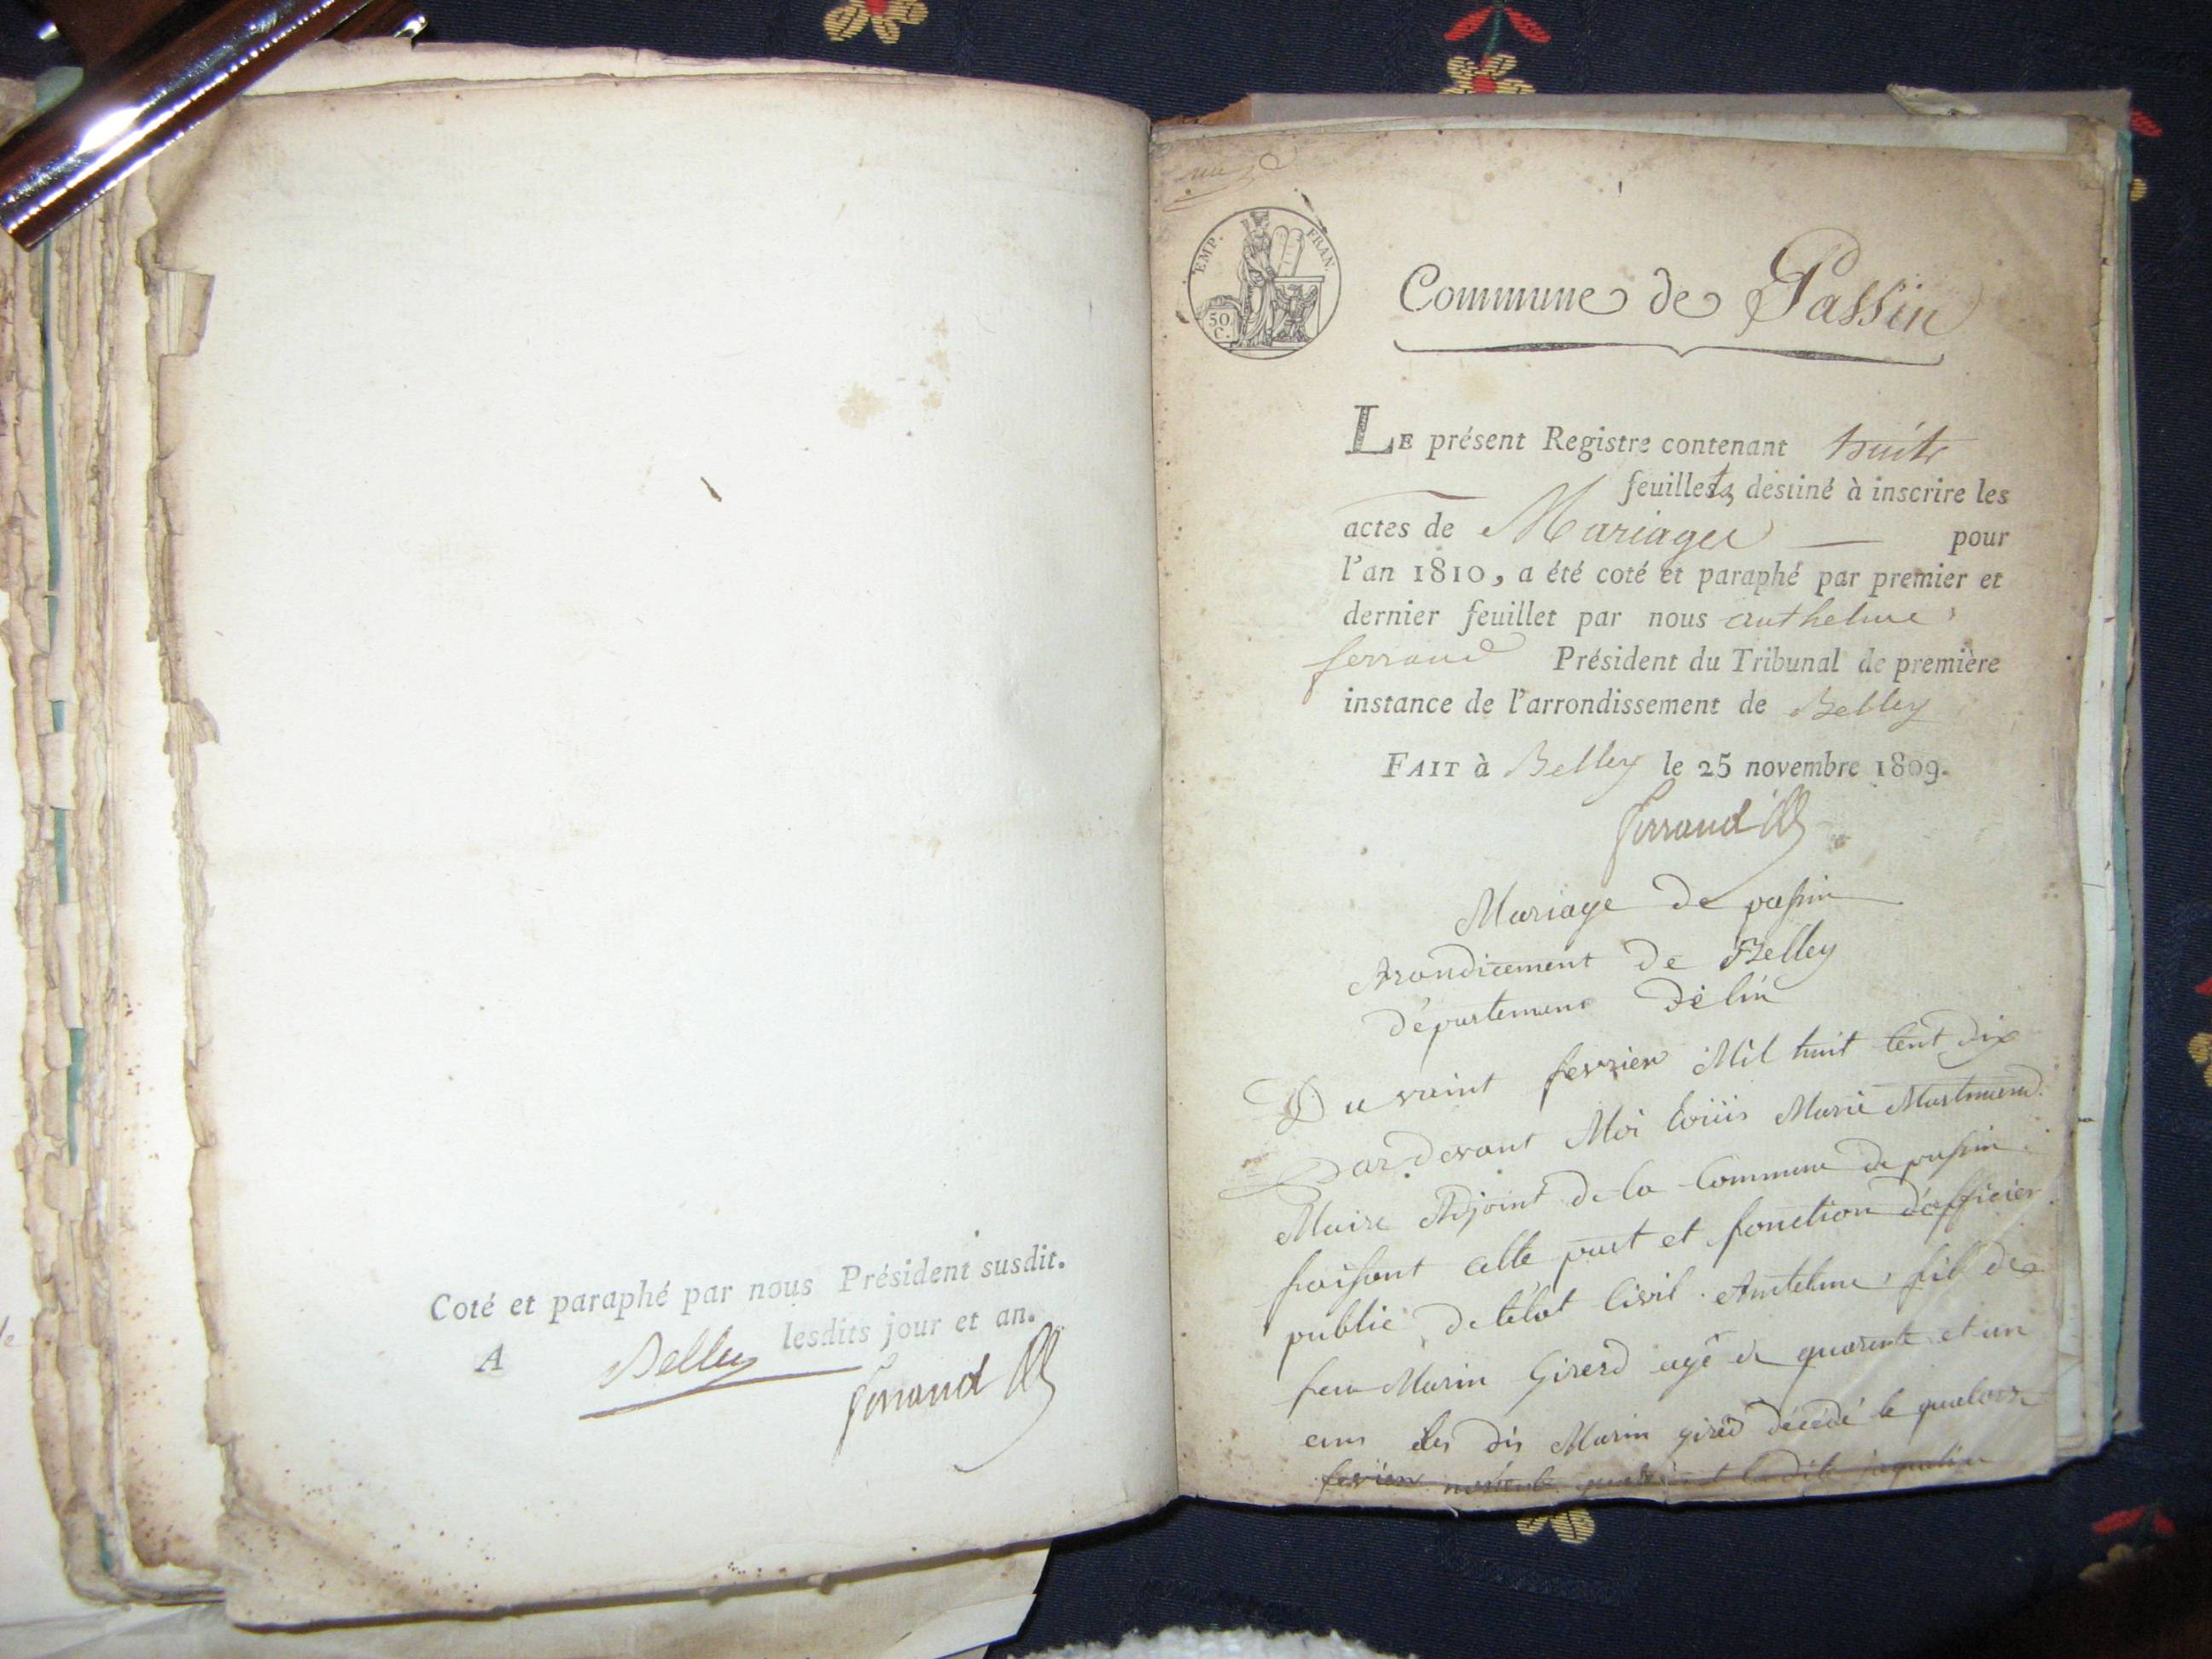 Coté et paraphé par nous Président susdit.
A Belley lesdits jour et an.
Ferrand
EMP. FRAN.
50 C.
Commune de Passin
LE présent Registre contenant huit
feuillets destiné à inscrire les
actes de Mariages pour
l'an 1810, a été coté et paraphé par premier et
dernier feuillet par nous anthelme
ferrand Président du Tribunal de première
instance de l'arrondissement de Belley
FAIT à Belley le 25 novembre 1809.
Ferrand
Mariage de passin
Arondicement de Belley
département de lin
Du vaint fevrier Mil huit Cent dix
Par devant Moi Loüis Marie
Maire Adjoint de la Commune de passin
faisant cette part et fonction d'officier
public de l'état Civil. Antelme, fil de
feu Marin Girerd agé de quarente et un
ans le dis Marin girerd décédé le quatorze